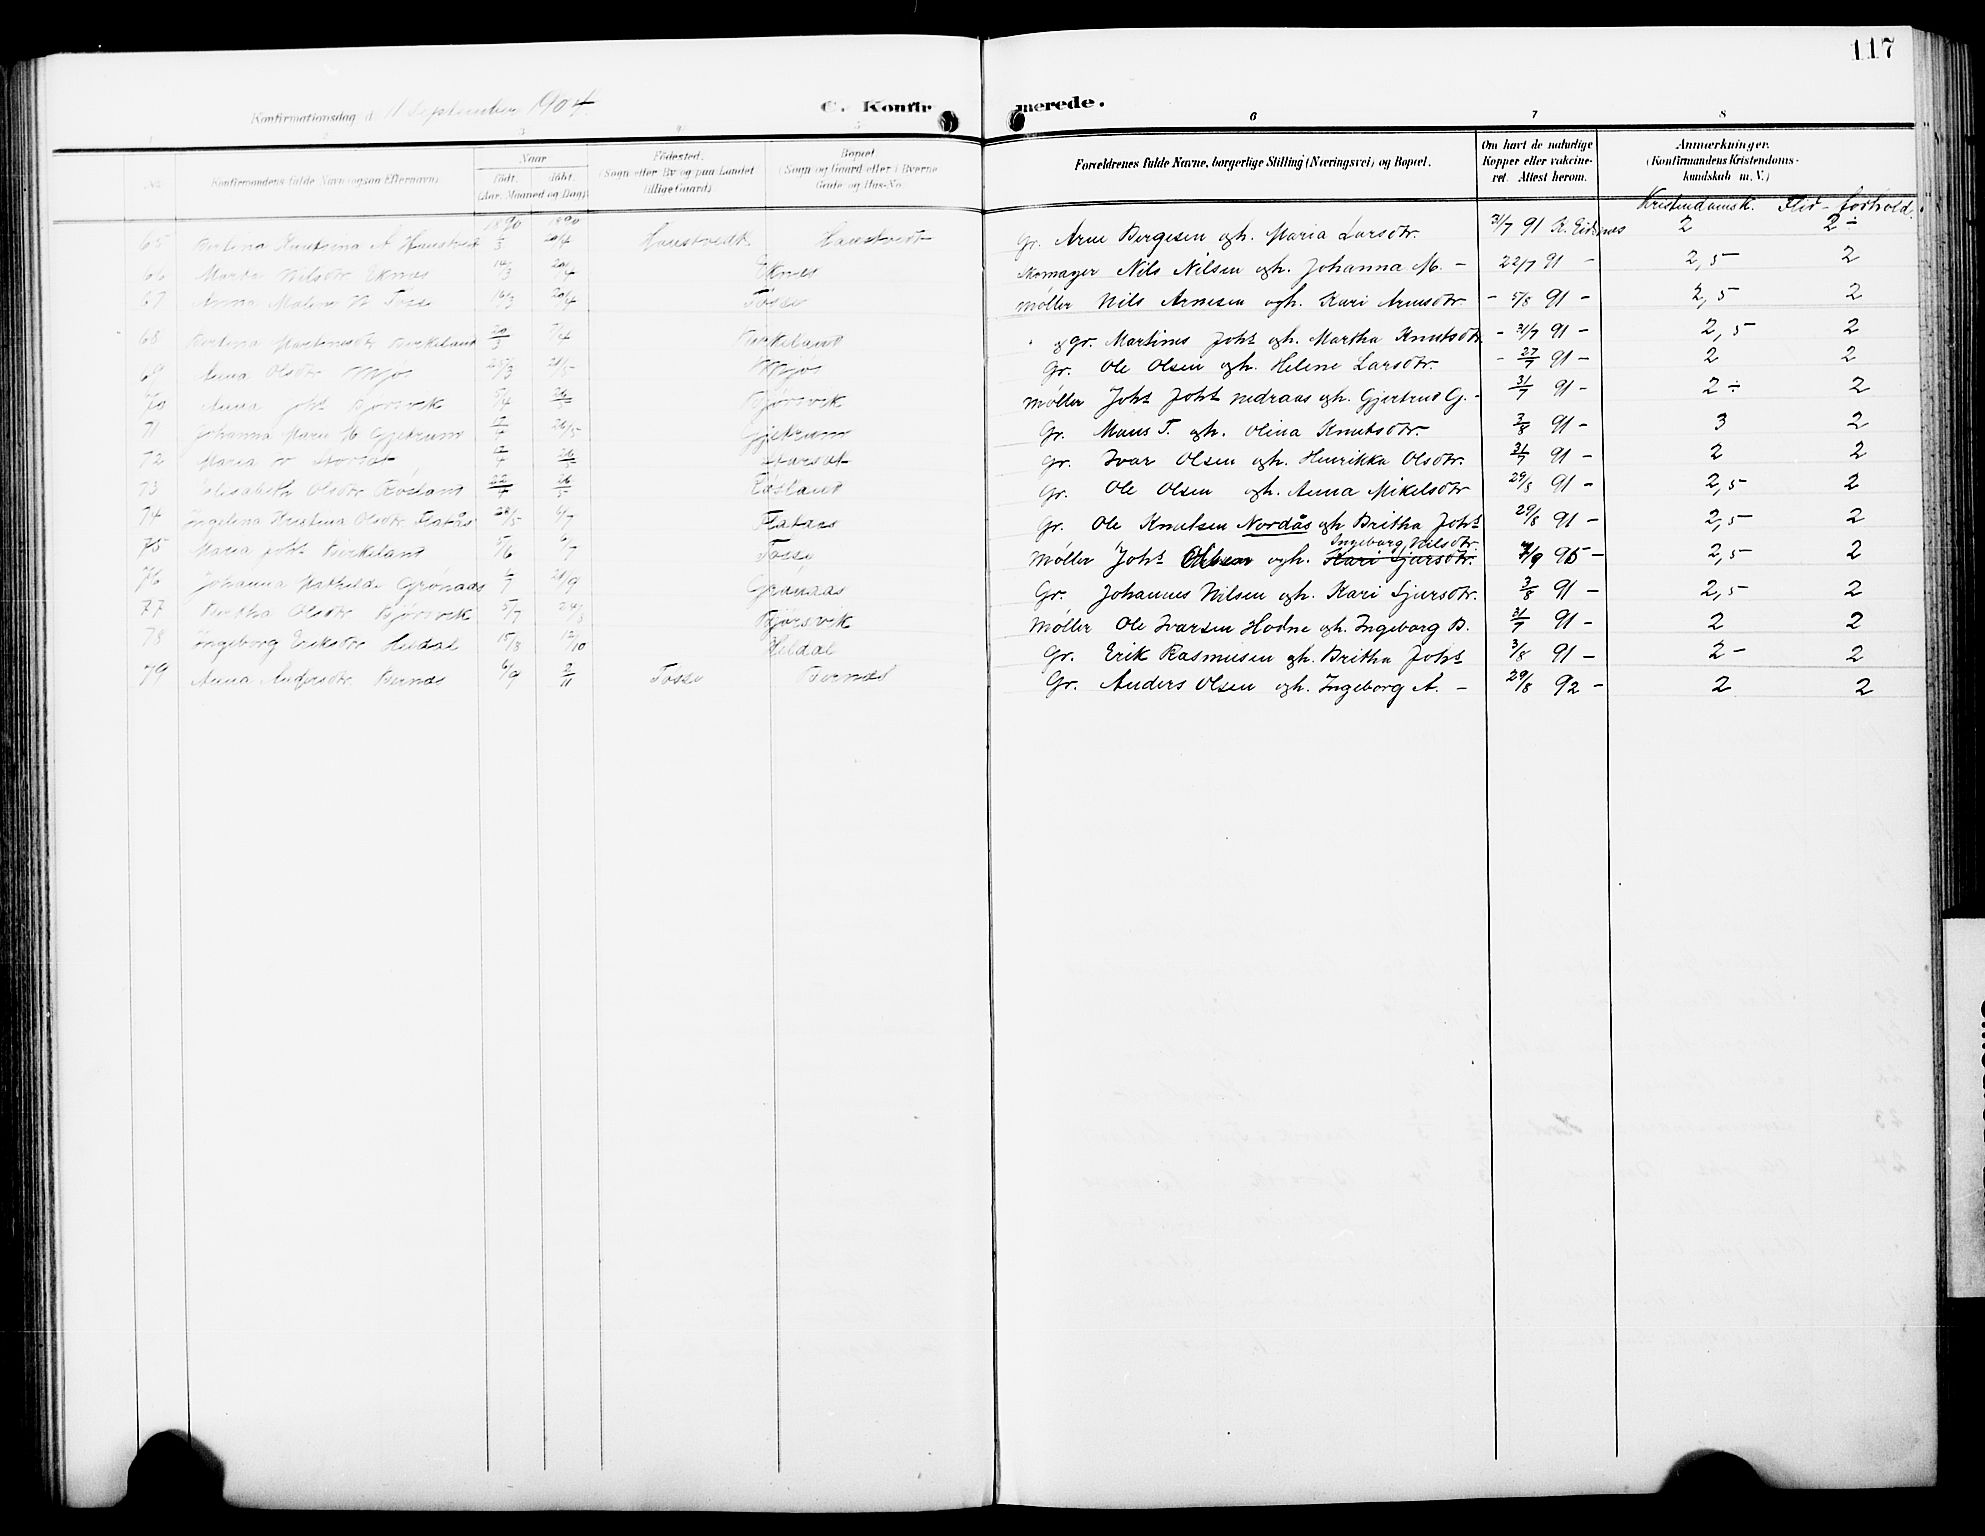 117
Konfirmationsdag d. 11 September 1904. C. Konfirmerede.
3 6 7 8
No. Konfirmandens fulde Navn (ogsaa Efternavn). Naar födt. döbt. (Aar, Maaned og Dag). Födested. (Sogn eller By og paa Landet tillige Gaard). Bopæl (Sogn og Gaard eller i Byerne Gade og Hus-No. Forældrenes fulde Navne, borgerlige Stilling (Næringsvei) og Bopæl. Om havt de naturlige Kopper eller vakcineret. Attest herom. Anmerkninger. (Konfirmandens Kristendomskundskab m. V.)
1890 1890 Kristendomsk. Flid - forhold.
65 Knutsina A. Haustvedt 20/4 Haustvedt Haustvedt Gr. Arne Bergesen og h. Maria Larsdtr. 31/7 91 K. Eidsnes 2 2÷
66 Marta Nilsdtr Eknes 14/3 20/4 Eknes Nils Nilsen og h. Johanna M. - 22/7 91 - 2,5 2
67 Anna Malene N. Fosse 16/3 20/4 Fosse Møller Nils Arnesen og h. Kari Arnesdtr - 5/8 91 - 2,5 2
68 Bertina Martinusdtr Birkeland 20/3 7/4 Birkeland " & gr. Martinus Johs og h. Martha Knutsdtr. - 31/7 91 - 2,5 2
69 Anna Olsdtr Mjøs 25/3 Mjøs Gr. Ole Olsen og h. Helene Larsdtr. - 27/7 91 - 2 2
70 Anna Johs Bjørsvik 5/4 26/5 Bjørsvik Møller Johs Johs nedraas og h. Gjertrud G. - 31/7 91 - 2÷ 2
71 Johanna Marie M. Gjetrum 26/5 Gjetrum Gr. Mons T. og h. Olina Knutsdtr. 3/8 91 - 3 2
72 Maria 26/5 Gr. Ivar Olsen og h. Henrikka Olsdtr. 31/7 91 - 2 2
73 Elisabeth Olsdtr Rosland 22/4 26/5 Rosland Gr. Ole Olsen og h. Anna Mikelsdtr 29/8 91 - 2,5 2
74 Ingelina Kristina Olsdtr Flatås 28/5 6/7 Flatås Gr. Ole Knutsen Nordås og h. Britha Johs 29/8 91 - 2,5 2
Ingeborg Nilsdtr.
75 Maria Johs Birkeland 5/6 6/7 Fosse Møller Johs Olsen og h. Kari Sjursdtr. 7/9 95 - 2,5 2
76 Johanna Mathilde Grønaas Grønaas Gr. Johannes Nilsen og h. Kari Sjursdtr. 3/8 91 - 2,5 2
77 Bertha Olsdtr Bjørsvik 5/7 24/8 Bjørsvik Møller Ole Ivarsen Hodne og h. Ingeborg B. 31/7 91 - 2 2
78 Ingeborg Eriksdtr Heldal 15/8 12/10 Heldal Gr. Erik Rasmusen og h. Britha Johs 3/8 91 - 2- 2
79 Anna Andersdtr Bernæs 6/9 2/11 Fosse Bernæs Gr. Anders Olsen og h. Ingeborg A. - 29/8 92 - 2 2